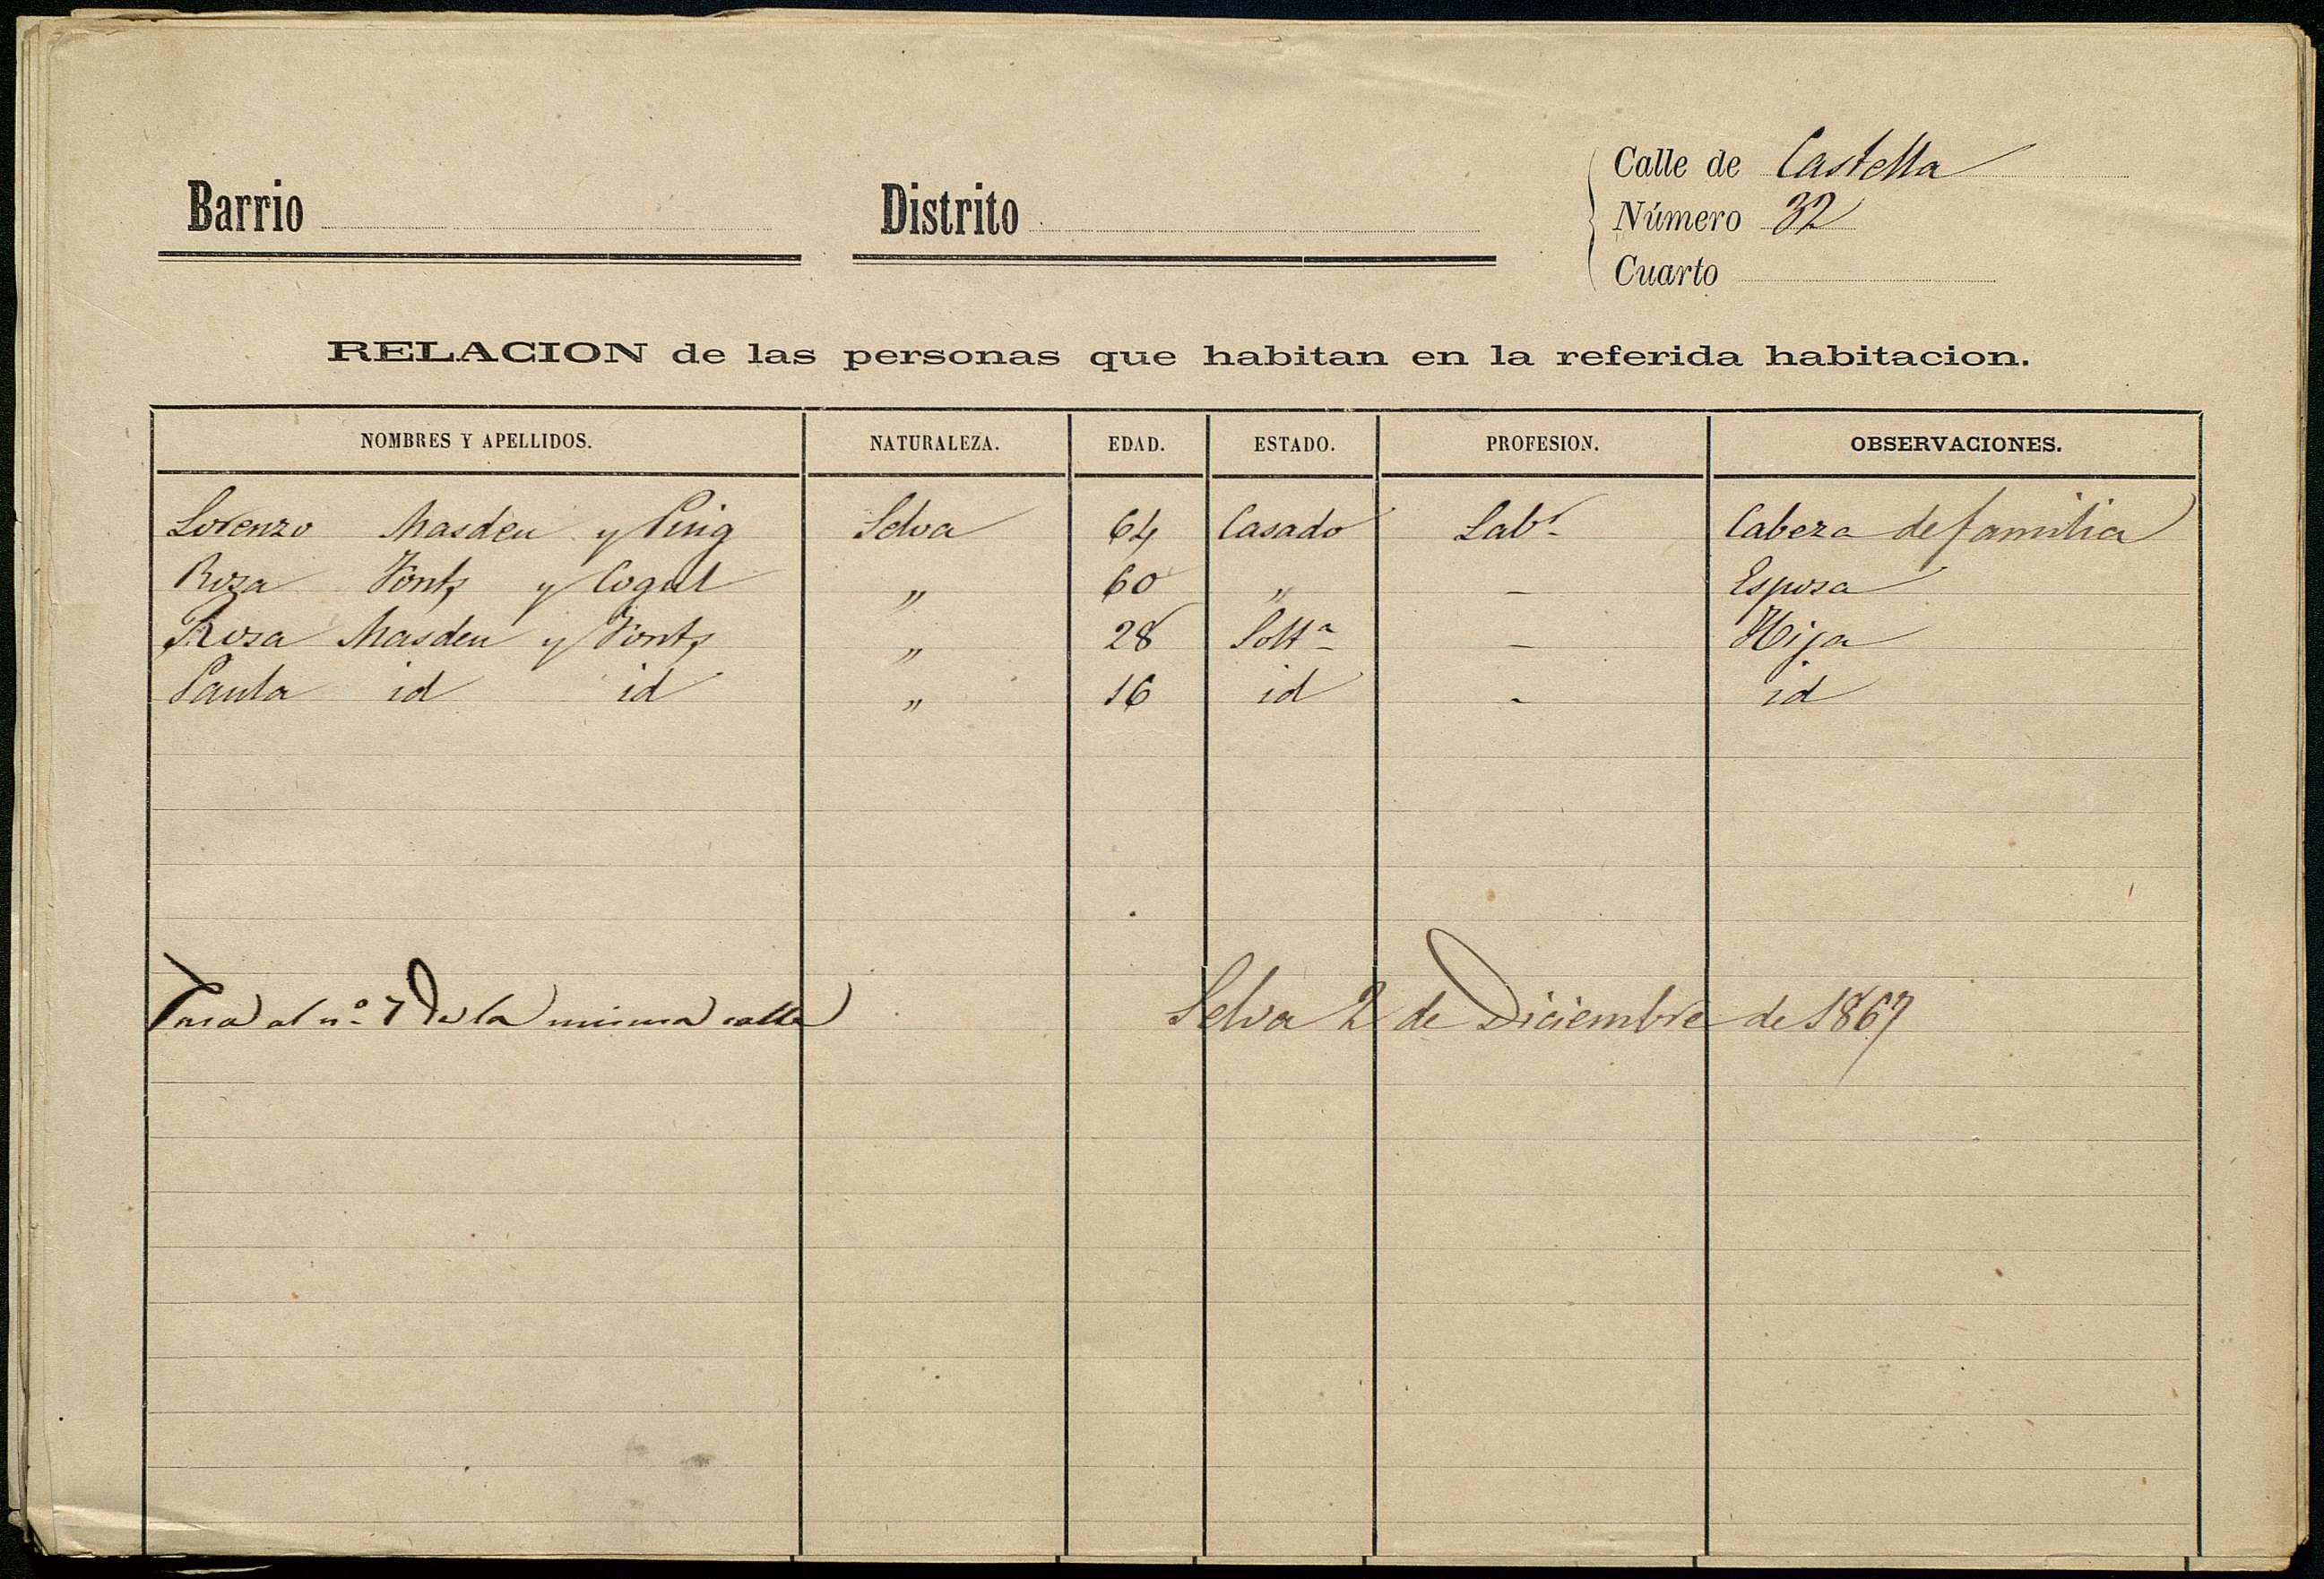 Barrio
Distrito
Calle de Castella
Número 32
Cuarto
RELACION de las personas que habitan en la referida habitacion.
NOMBRES Y APELLIDOS. NATURALEZA. EDAD. ESTADO. PROFESION. OBSERVACIONES.
Lorenzo Masdeu y Puig Selva 64 Casado Labr. Cabeza de familia
Rosa Fonts y Cogul " 60 " - Esposa
Rosa Masdeu y Fonts " 28 Solta - Hija
Paula id id " 16 id - id
Pasa al nº 7 de la misma calle
Selva 2 de Diciembre de 1867